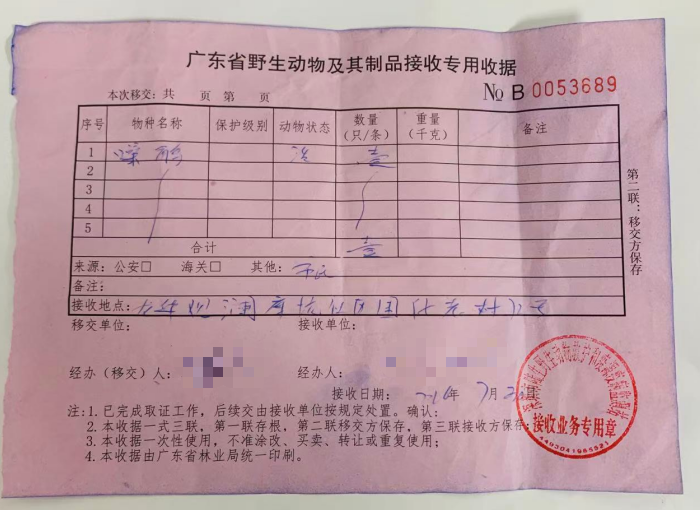 广东省野生动物及其制品接收专用收据
本次移交：共 页 第 页
№ B 0053689
序号 物种名称 保护级别 动物状态 数量（只/条） 重量（千克） 备注
1 噪鹃 活 壹
2
3
4
5
合计 壹
来源：公安□ 海关□ 其他：
备注：
接收地点：
移交单位： 接收单位：
经办（移交）人： 经办人：
接收日期： 年 月
注：1.已完成取证工作，后续交由接收单位按规定处置。确认：
2.本收据一式三联，第一联存根，第二联移交方保存，第三联接收方保存；
3.本收据一次性使用，不准涂改、买卖、转让或重复使用；
4.本收据由广东省林业局统一印刷。
第二联：移交方保存
接收业务专用章